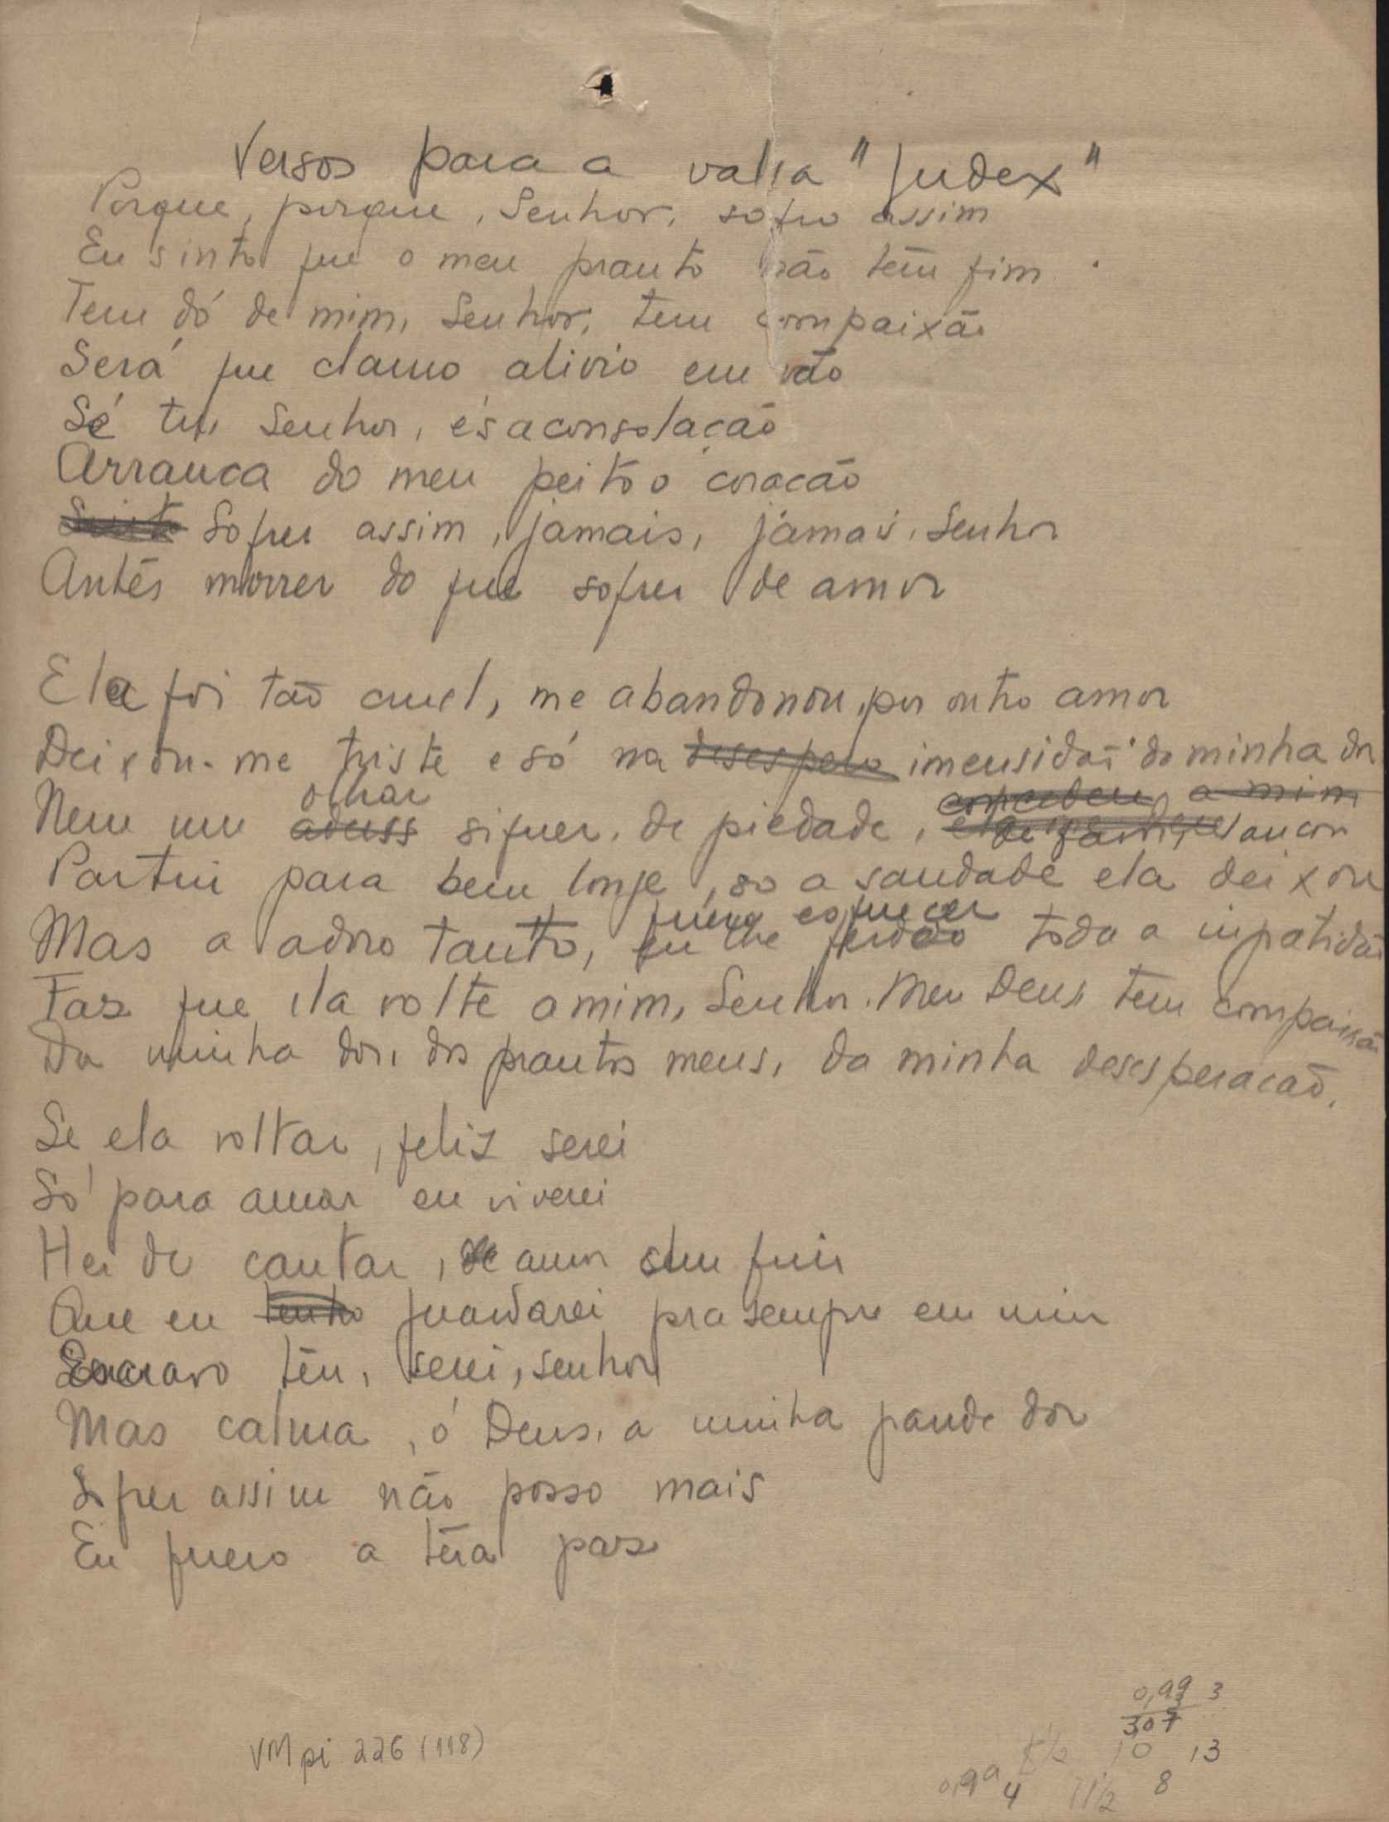 Versos para a valsa "Judex"
Porque, porque, Senhor, sofro assim
Eu sinto que o meu pranto não tem fim
Tem dó de mim, Senhor, tem compaixão
Será que clamo alivio em vão
Só tu, Senhor, és a consolação
Arranca do meu peito o coração
Sofrer assim, jamais, jamais, Senhor
Antes morrer do que sofrer de amor
Ela foi tão cruel, me abandonou, por outro amor
Deixou-me triste e só na desespero imensidão da minha dor
olhar concedeu a mim
Nem um adeus siquer, de piedade, lançou
Partiu para bem longe, so a saudade ela deixou
quero esquecer
Mas a adoro tanto, eu lhe perdôo toda a ingratidão
Faz que ela volte a mim, Senhor. Meu Deus tem compaixão
Da minha dor, dos prantos meus, da minha desesperacão.
Se ela voltar, feliz serei
Só para amar eu viverei
Hei de cantar, de amor sem fim
Que eu tenho guardarei pra sempre em mim
Escravo teu, serei, senhor
Mas calma, ó Deus, a minha grande dor
Sofrer assim não posso mais
Eu quero a tua paz
VMpi 226 (118)
0,99 3
307
10 13
0,99 4 11½ 8